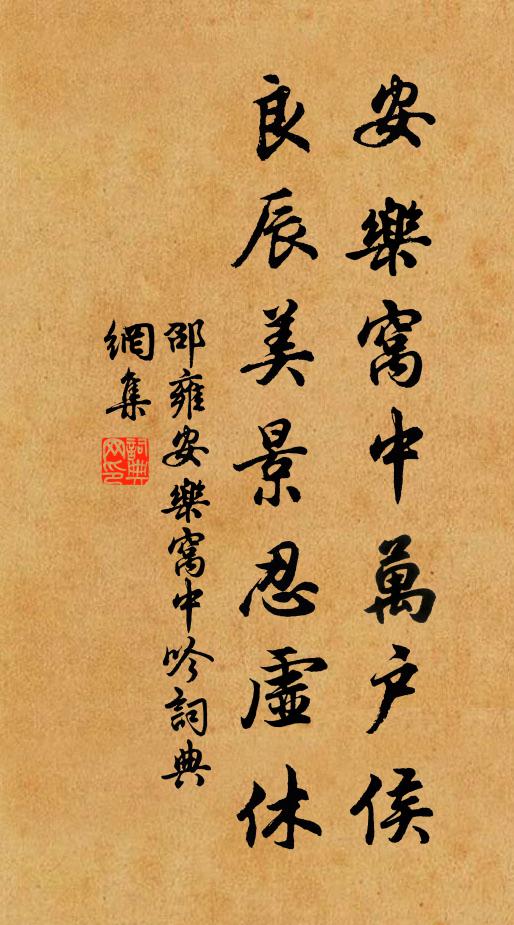 安樂窩中萬戶侯
良辰美景忍虛休
邵雍安樂窩中吟詞典
網集
詞典
网印